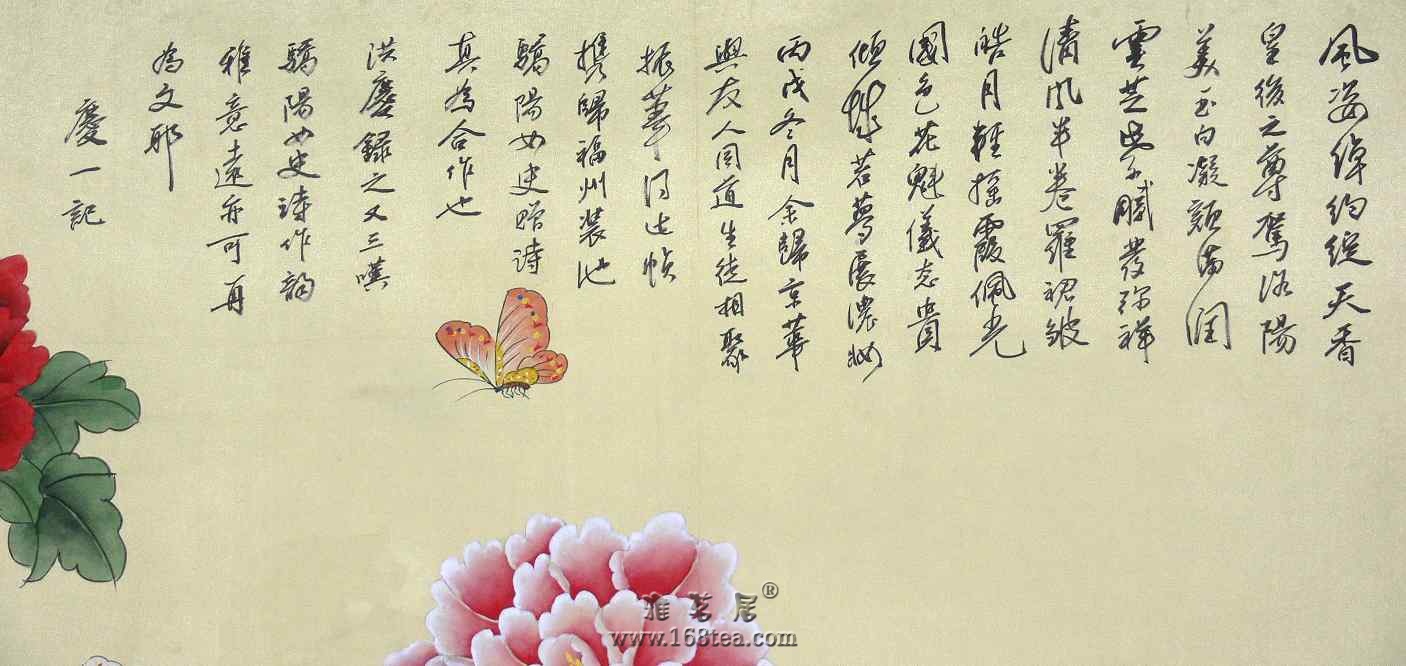 風姿綽約綻天香
皇後之尊駕洛陽
美玉白凝韻滿潤
雲芝紫氣賦發祥
清風半卷羅裙皺
皓月輕搖霞佩光
國色花魁儀态貴
傾城若夢展濃妝
丙戌冬月余歸京華
與友人同道生徒相聚
振華同此幀
携歸福州裝池
驕陽女史贈詩
真為合作也
洪慶録之又三嘆
驕陽女史詩作韵
雅意遠亦可再
為文耶
慶一記
雅茗居®
www.168tea.com